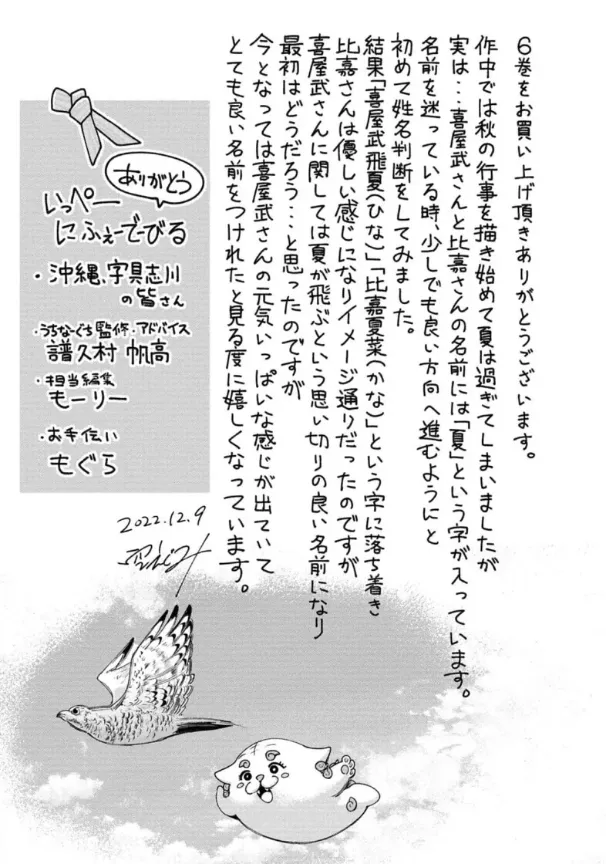 6巻をお買い上げ頂きありがとうございます。
作中では秋の行事を描き始めて夏は過ぎてしまいましたが
実は・・・喜屋武さんと比嘉さんの名前には「夏」という字が入っています。
名前を迷っている時、少しでも良い方向へ進むようにと
初めて姓名判断をしてみました。
結果「喜屋武飛夏(ひな)」「比嘉夏菜(かな)」という字に落ち着き
比嘉さんは優しい感じになりイメージ通りだったのですが
喜屋武さんに関しては夏が飛ぶという思い切りの良い名前になり
最初はどうだろう・・・と思ったのですが
今となっては喜屋武さんの元気いっぱいな感じが出ていて
とても良い名前をつけれたと見る度に嬉しくなっています。
ありがとう
いっぺー
にふぇーでーびる
・沖縄、字具志川
の皆さん
・うちなーぐち監修・アドバイス
譜久村 帆高
・担当編集
もーリー
・お手伝い
もぐら
2022.12.9